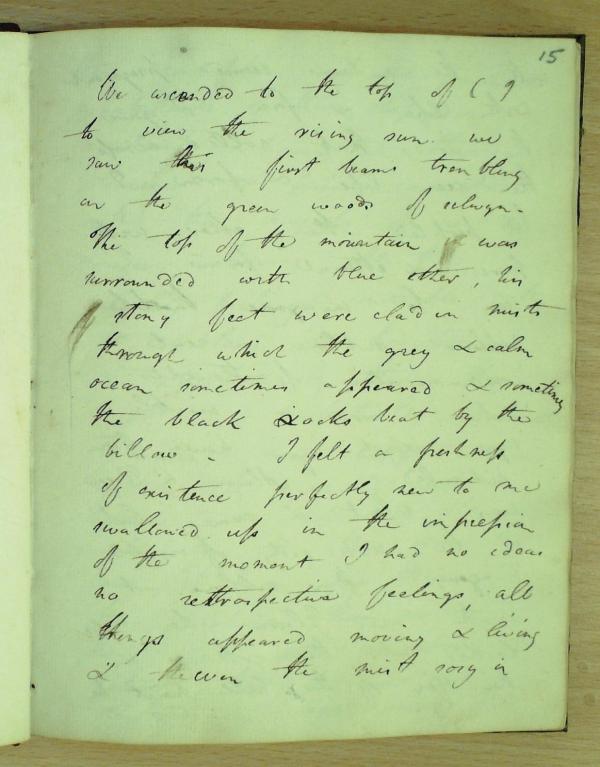 15
We ascended to the top of ( )
to view the rising sun. we
saw this first beams trembling
on the green woods of
The top of the mountain was
surrounded with blue ether, his
stony feet were clad in mists
through which the grey & calm
ocean sometimes appeared & sometimes
the black rocks beat by the
billow - I felt a freshness
of existence perfectly new to me
swallowed up in the impression
of the moment I had no ideas
no retrospective feelings, all
things appeared moving & living
& even the mist rosy in